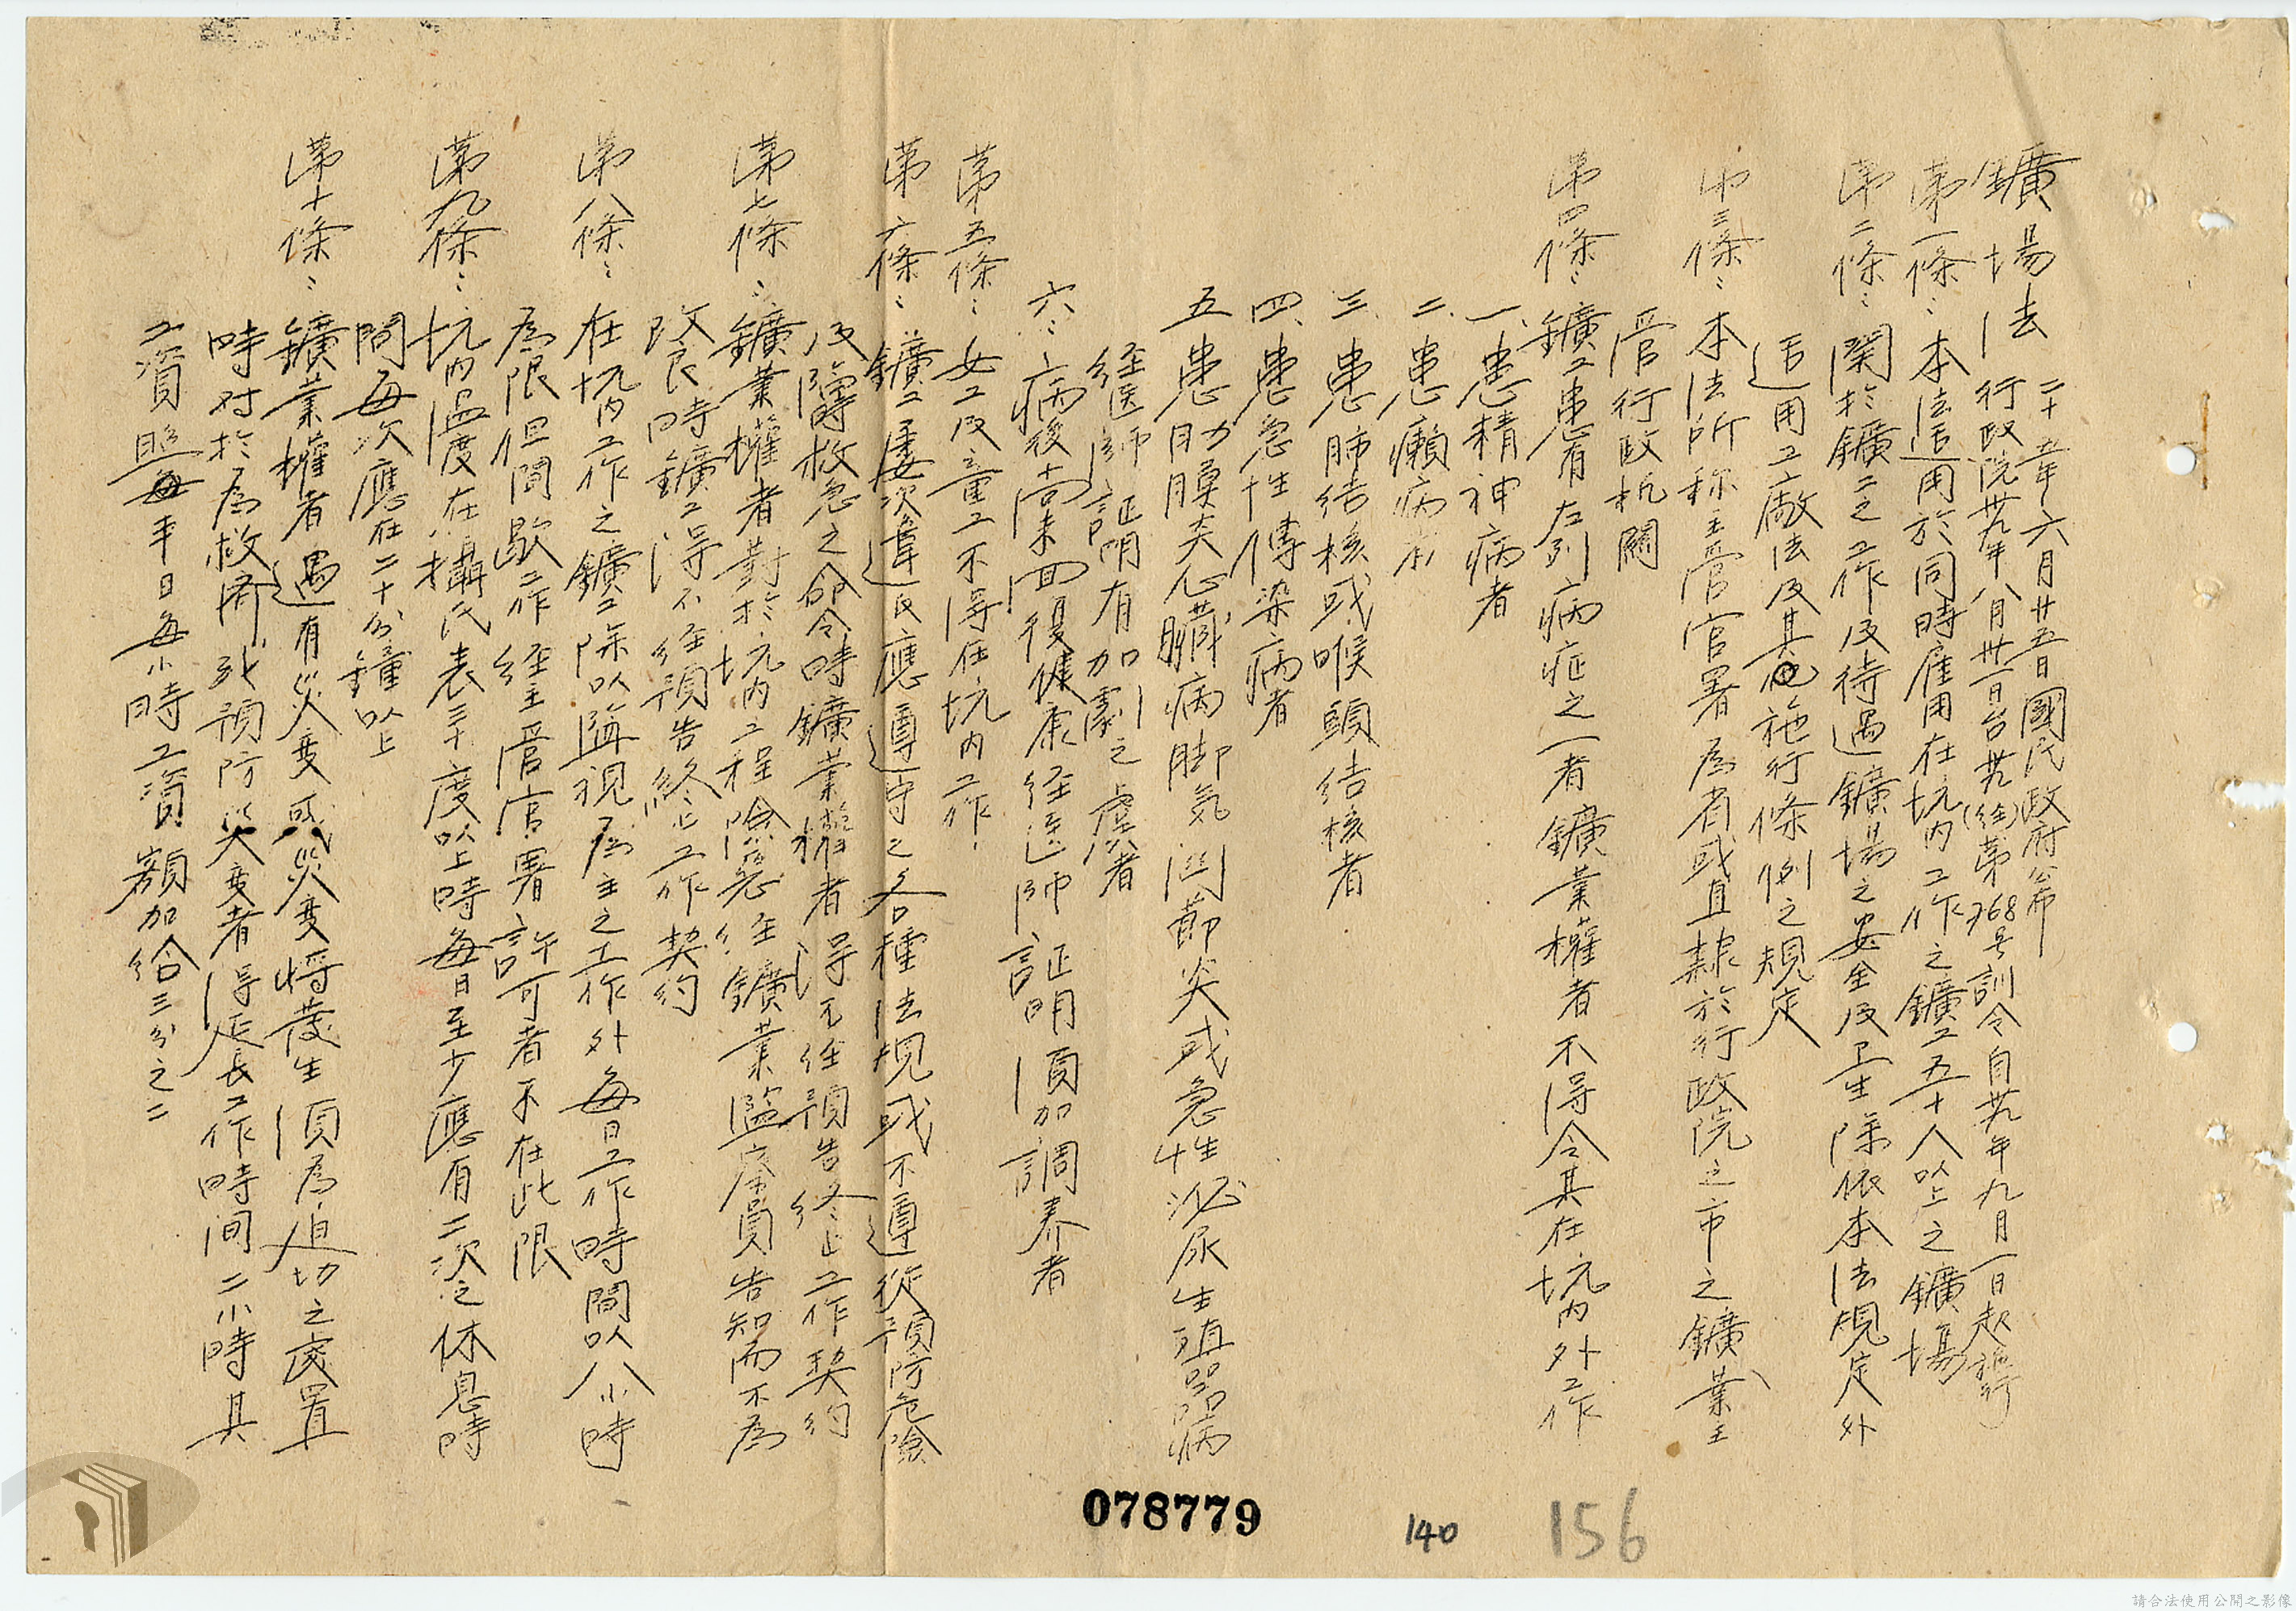 鑛場法
二十五年六月廿五日國民政府公布
行政院卅九年八月卅一日台卅九(经)第768号訓令自卅九年九月一日起施行
第一條：本法适用於同時雇用在坑内工作之鑛工五十人以上之鑛場
第二條：関於鑛工之工作及待遇鑛場之安全及卫生除依本法規定外
适用工廠法及其他施行條例之規定
第三條：本法所称主管官署為省或直隸於行政院之市之鑛業主
管行政机關
第四條：鑛工患有左列病症之一者鑛業權者不得令其在坑内外工作
一、患精神病者
二、患癩病者
三、患肺结核或喉頭结核者
四、患急性傳染病者
五患肋膜炎心臟病脚気関節炎或急性泌尿生殖器病
经医師証明有加劇之虞者
六：病後尚未回復健康经医師証明須加調养者
第五條：女工及童工不得在坑内工作.
第六條：鑛工屡次違反應遵守之各種法規或不遵從預防危險
及障礙救急之命令時鑛業權者得不经預告终止工作契约
第七條：鑛業權者對於坑内工程險惡经鑛業監察員告知而不為
改良時鑛工得不经預告终止工作契约
第八條：在坑内工作之鑛工除以監視為主之工作外每日工作時間以八小時
為限但間歇工作经主管官署許可者不在此限
第九條：坑内温度在攝氏表三十度以上時每日至少應有二次之休息時
間每次應在二十分鐘以上
第十條：鑛業權者遇有災变或災变將發生須為迫切之處置
時对於為救濟或預防災变者得延長工作時间二小時其
工資照每平日每小時工資額加给三分之二
078779
140
156
請合法使用公開之影像